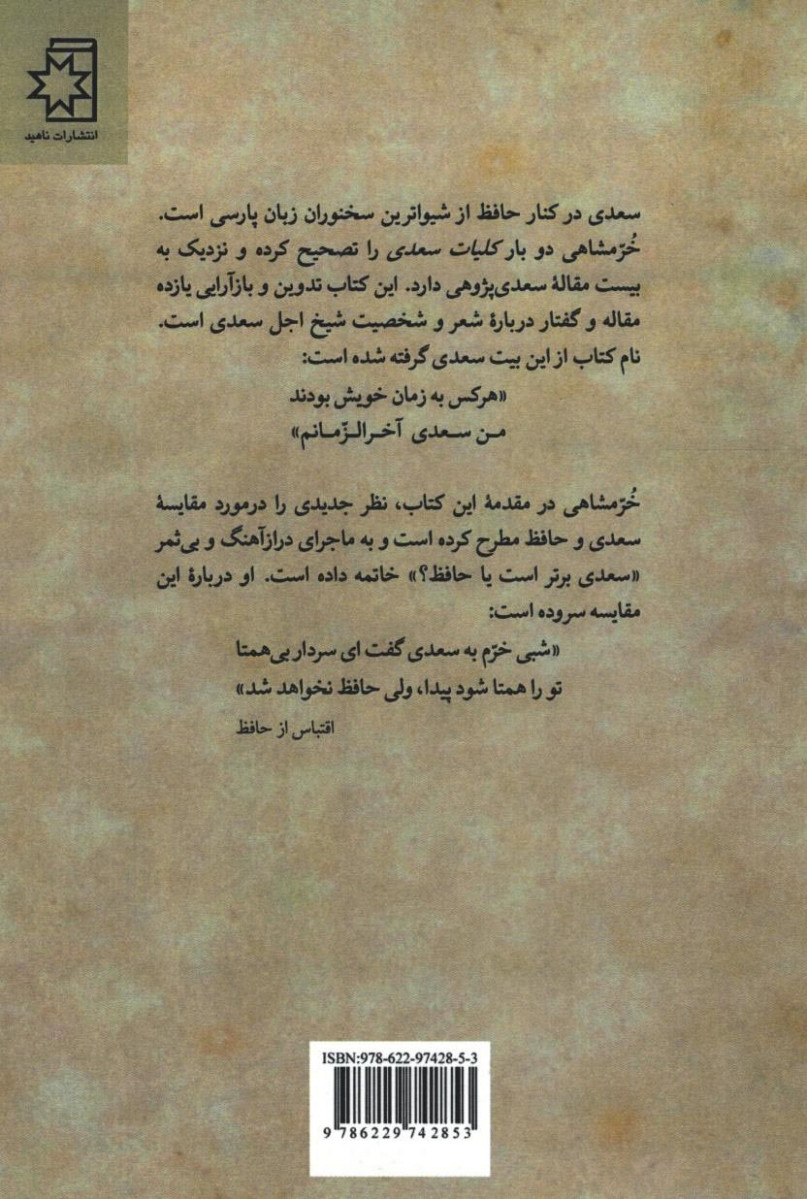 انتشارات ناهید
سعدی در کنار حافظ از شیواترین سخنوران زبان پارسی است.
خُرّمشاهی دو بار کلیات سعدی را تصحیح کرده و نزدیک به
بیست مقالهٔ سعدی‌پژوهی دارد. این کتاب تدوین و بازآرایی یازده
مقاله و گفتار دربارهٔ شعر و شخصیت شیخ اجل سعدی است.
نام کتاب از این بیت سعدی گرفته شده است:
«هرکس به زمان خویش بودند
من سعدی آخرالزّمانم»
خُرّمشاهی در مقدمهٔ این کتاب، نظر جدیدی را درمورد مقایسهٔ
سعدی و حافظ مطرح کرده است و به ماجرای درازآهنگ و بی‌ثمر
«سعدی برتر است یا حافظ؟» خاتمه داده است. او دربارهٔ این
مقایسه سروده است:
«شبی خرّم به سعدی گفت ای سردار بی‌همتا
تو را همتا شود پیدا، ولی حافظ نخواهد شد»
اقتباس از حافظ
ISBN:978-622-97428-5-3
9 786229 742853